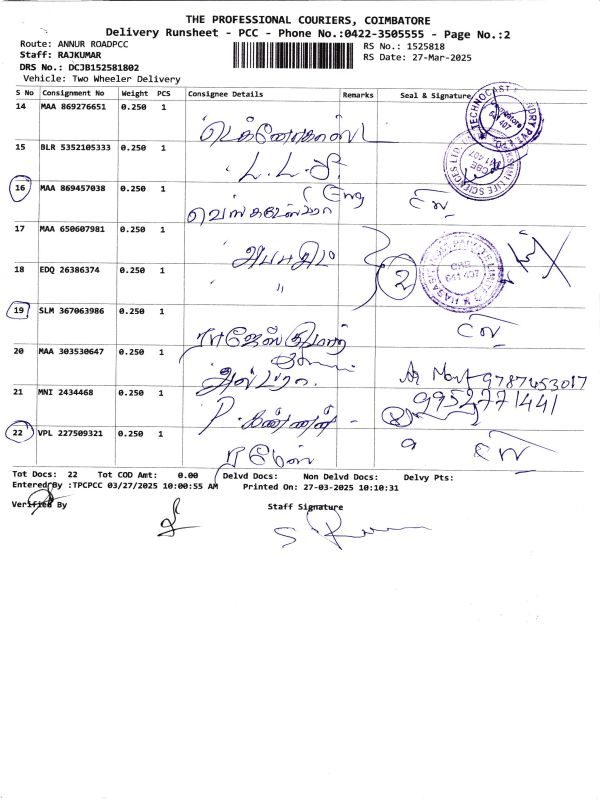 THE PROFESSIONAL COURIERS, COIMBATORE
Delivery Runsheet - PCC - Phone No.:0422-3505555 - Page No.:2
Route: ANNUR ROADPCC
RS No.: 1525818
Staff: RAJKUMAR
RS Date: 27-Mar-2025
DRS No.: DCJB152581802
Vehicle: Two Wheeler Delivery
S No Consignment No Weight PCS Consignee Details Remarks Seal & Signature
14 MAA 869276651 0.250 1
15 BLR 5352105333 0.250 1
L. L. S.
16 MAA 869457038 0.250 1
17 MAA 650607981 0.250 1
18 EDQ 26386374 0.250 1
" 2
19 SLM 367063986 0.250 1
ராஜேஸ்குமார்
20 MAA 303530647 0.250 1
9787453017
21 MNI 2434468 0.250 1
9952771441
P. கண்ணன் -
22 VPL 227509321 0.250 1
ரமேஸ்
Tot Docs: 22 Tot COD Amt: 0.00 Delvd Docs: Non Delvd Docs: Delvy Pts:
Entered By :TPCPCC 03/27/2025 10:00:55 AM Printed On: 27-03-2025 10:10:31
Verified By Staff Signature